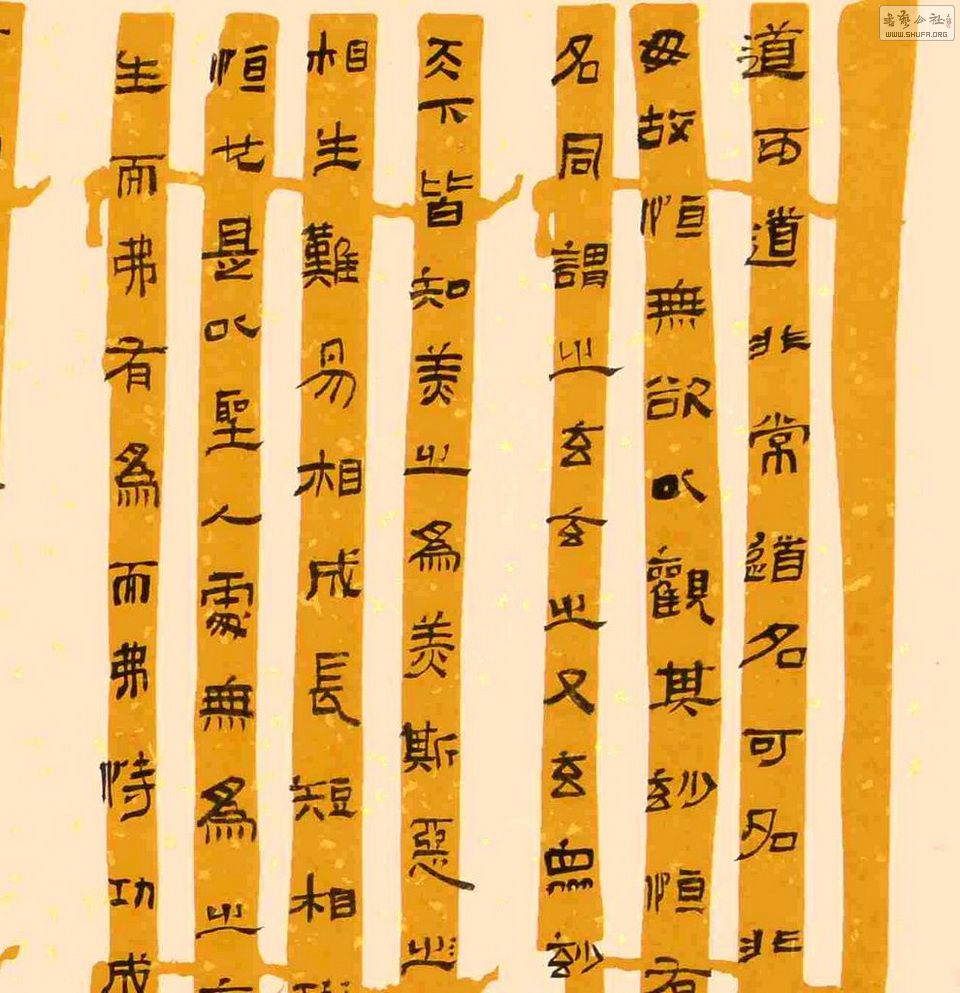 道可道非常道名可名非
母故恒無欲以觀其玅恒有
名同謂之玄玄之又玄眾玅
天下皆知美之為美斯惡之
相生難易相成長短相
恒也是以聖人處無為之
生而弗有為而弗恃功成
书艺公社
WWW.SHUFA.ORG